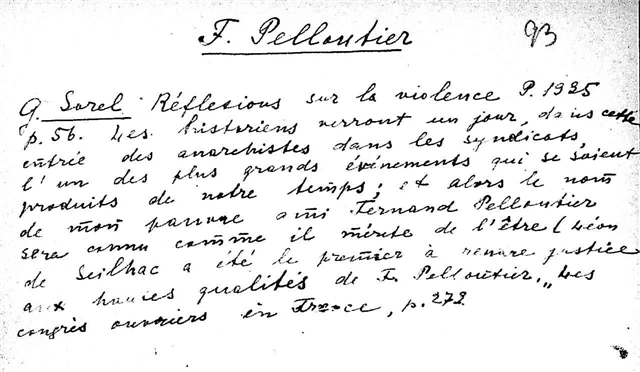 F. Pelloutier 93
G. Sorel Réflesions sur la violence P. 1925
p. 56. Les historiens verront un jour, dans cette
entrée des anarchistes dans les syndicats,
l'un des plus grands événements qui se soient
produits de notre temps; et alors le nom
de mon pauvre ami Fernand Pelloutier
sera connu comme il mérite de l'être (Léon
de Seilhac a été le premier à rendre justice
aux hautes qualités de F. Pelloutier. „Les
congrès ouvriers en France, p. 272